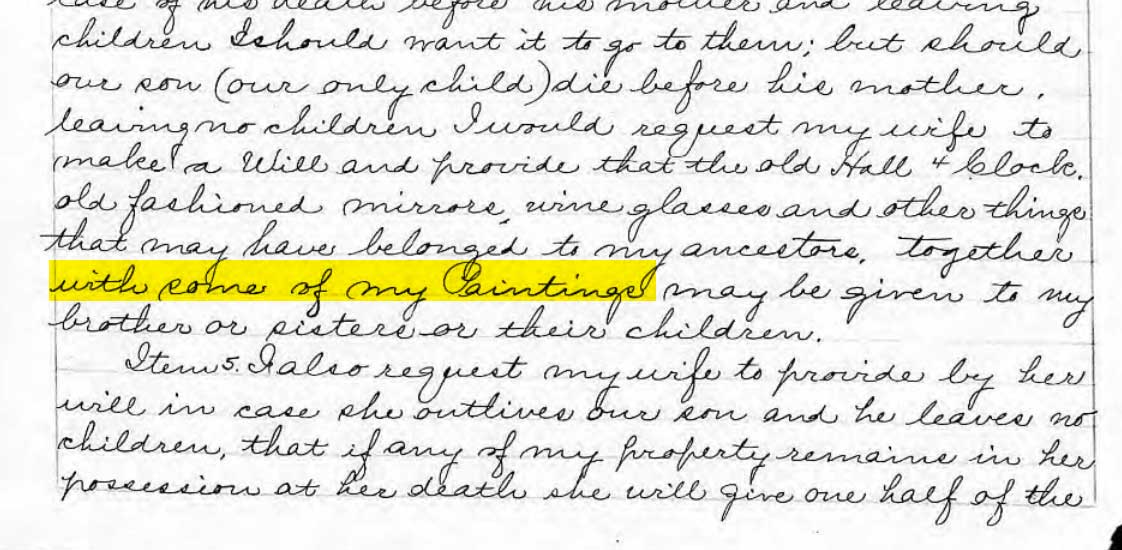 case of his death before his mother and leaving
children I should want it to go to them; but should
our son (our only child) die before his mother,
leaving no children I would request my wife to
make a Will and provide that the old Hall & Clock,
old fashioned mirrors, wine glasses and other things
that may have belonged to my ancestors, together
with some of my Paintings may be given to my
brother or sisters or their children.
Item 5. I also request my wife to provide by her
will in case she outlives our son and he leaves no
children, that if any of my property remains in her
possession at her death she will give one half of the